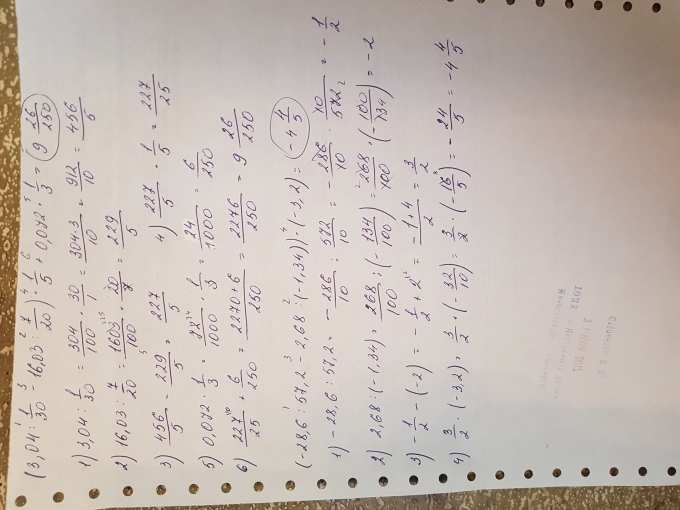 (3,04 : 1/30 - 16,03 : 7/20) · 1/5 + 0,072 · 1/3 = 9 26/250
1) 3,04 : 1/30 = 304/100 · 30/1 = 304·3/10 = 912/10 = 456/5
2) 16,03 : 7/20 = 1603/100 · 20/7 = 229/5
3) 456/5 - 229/5 = 227/5 4) 227/5 · 1/5 = 227/25
5) 0,072 · 1/3 = 72/1000 · 1/3 = 24/1000 = 6/250
6) 227/25 + 6/250 = 2270+6/250 = 2276/250 = 9 26/250
(-28,6 : 57,2 - 2,68 : (-1,34)) · (-3,2) = -4 4/5
1) -28,6 : 57,2 = -286/10 : 572/10 = -286/10 · 10/572 = -1/2
2) 2,68 : (-1,34) = 268/100 : (-134/100) = 268/100 · (-100/134) = -2
3) -1/2 - (-2) = -1/2 + 2 = -1+4/2 = 3/2
4) 3/2 · (-3,2) = 3/2 · (-32/10) = 3/2 · (-16/5) = -24/5 = -4 4/5